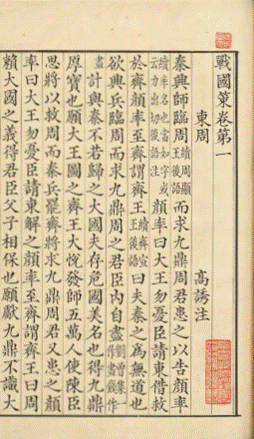 戰國策卷第一
東周 高誘注
秦興師臨周續周顯王後語而求九鼎周君患之以告顏率
續率名也當如字或云力出切後語顏率曰大王勿憂臣請東借救
於齊顏率至齊謂齊王續齊宣王後語曰夫秦之為無道也
欲興兵臨周而求九鼎周之君臣內自盡劉曾集作畫錢作
盡計與秦不若歸之大國夫存危國美名也得九鼎
厚寶也願大王圖之齊王大悅發師五萬人使陳臣
思將以救周而秦兵罷齊將求九鼎周君又患之顏
率曰大王勿憂臣請東解之顏率至齊謂齊王曰周
賴大國之義得君臣父子相保也願獻九鼎不識大